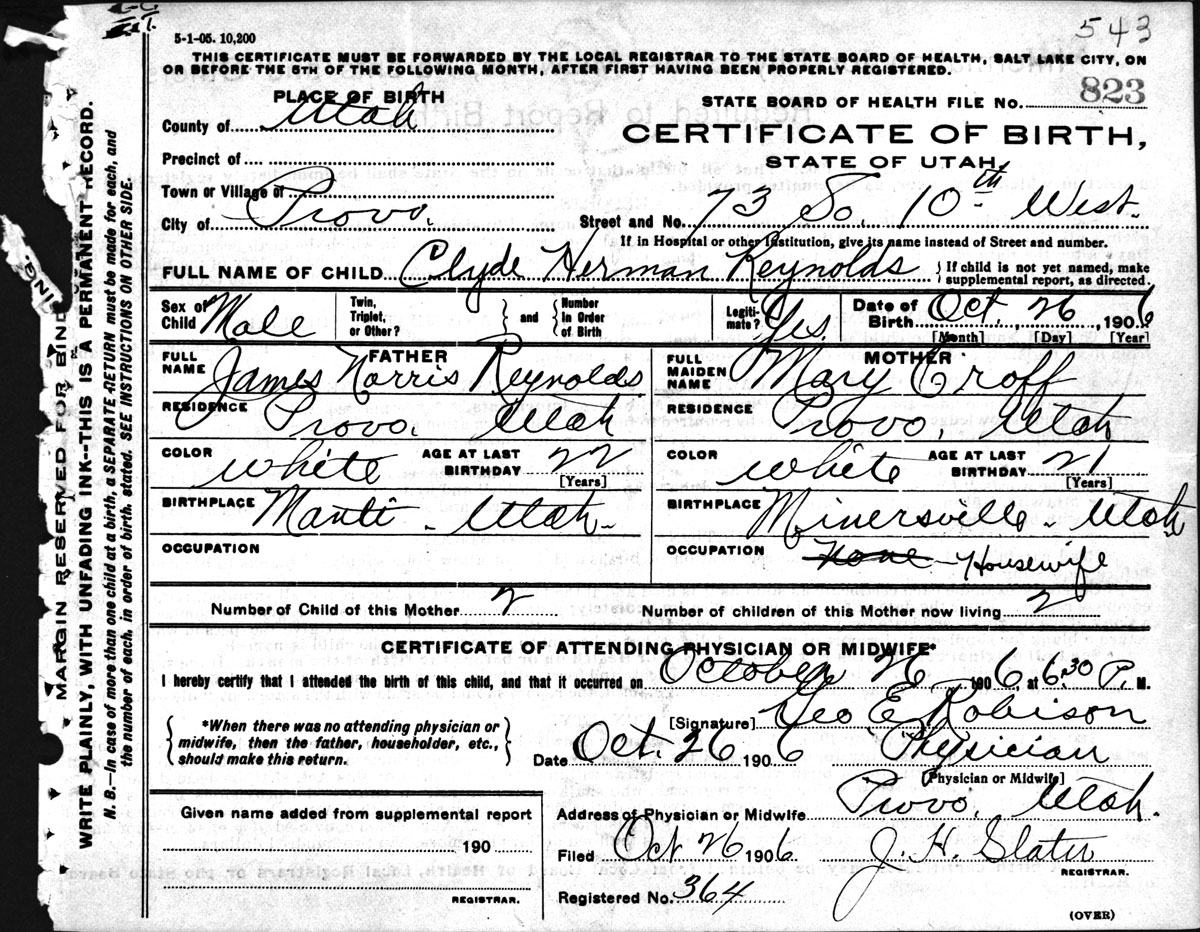 543
5-1-05. 10,200
THIS CERTIFICATE MUST BE FORWARDED BY THE LOCAL REGISTRAR TO THE STATE BOARD OF HEALTH, SALT LAKE CITY, ON
OR BEFORE THE 5TH OF THE FOLLOWING MONTH, AFTER FIRST HAVING BEEN PROPERLY REGISTERED.
PLACE OF BIRTH
STATE BOARD OF HEALTH FILE No. 823
County of Utah
CERTIFICATE OF BIRTH,
STATE OF UTAH.
Precinct of
Town or Village of
City of Provo.
Street and No. 73 So. 10th West.
If in Hospital or other Institution, give its name instead of Street and number.
FULL NAME OF CHILD Clyde Herman Reynolds { If child is not yet named, make
supplemental report, as directed.
Sex of Child Male Twin, Triplet, or Other? } and { Number in Order of Birth Legiti-mate? Yes. Date of Birth Oct. 26, 1906
[Month] [Day] [Year]
FULL NAME FATHER James Norris Reynolds
FULL MAIDEN NAME MOTHER Mary Croff
RESIDENCE Provo. Utah
RESIDENCE Provo, Utah
COLOR white AGE AT LAST BIRTHDAY 22 [Years]
COLOR white AGE AT LAST BIRTHDAY 21 [Years]
BIRTHPLACE Manti - Utah.
BIRTHPLACE Minersville - Utah
OCCUPATION
OCCUPATION None - Housewife
Number of Child of this Mother 2 Number of children of this Mother now living 2
CERTIFICATE OF ATTENDING PHYSICIAN OR MIDWIFE*
I hereby certify that I attended the birth of this child, and that it occurred on October 26 1906, at 6:30 P. M.
{ *When there was no attending physician or
midwife, then the father, householder, etc.,
should make this return. }
[Signature] Geo E. Robison
Date Oct. 26 1906 Physician
[Physician or Midwife]
Address of Physician or Midwife Provo, Utah.
Given name added from supplemental report
190
REGISTRAR.
Filed Oct 26 1906. J. H. Slater
REGISTRAR.
Registered No. 364
(OVER)
MARGIN RESERVED FOR BINDING.
WRITE PLAINLY, WITH UNFADING INK--THIS IS A PERMANENT RECORD.
N. B.—In case of more than one child at a birth, a SEPARATE RETURN must be made for each, and
the number of each, in order of birth, stated. SEE INSTRUCTIONS ON OTHER SIDE.